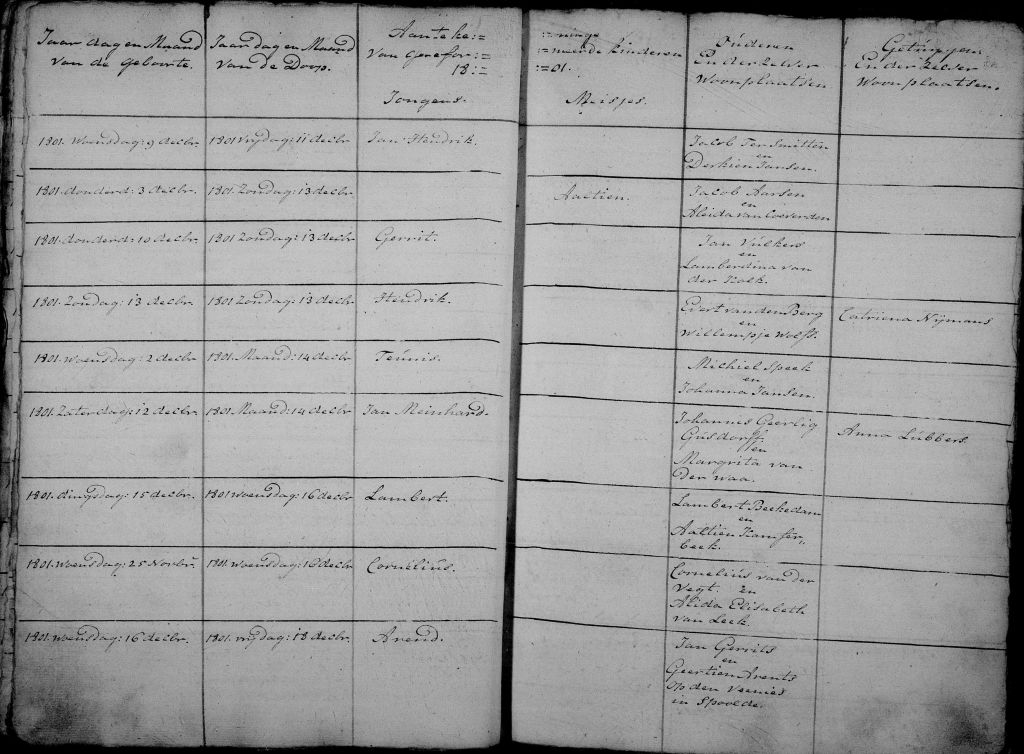 Jaar dag en Maand
van de Geboorte.
Jaar dag en Maand
van de Doop.
Aanteke:=
van Gerefor:=
18:=
Jongens.
:=ninge
:=meerde kinderen
:=01.
Meisjes.
Ouderen
En der zelver
Woonplaatsen
Getuigen
En der zelver
Woonplaatsen.
1801. Woensdag: 9 decbr. 1801 Vrijdag: 11 decbr Jan Hendrik. Jacob Ter Smitten
en
Derkien Jansen.
1801. donderd: 3 decbr. 1801. Zondag: 13 decbr Aaltien. Jacob Aarsen
en
Aleida van Coeverden
1801. donderd: 10 decbr. 1801 Zondag: 13 decbr Gerrit. Jan Vulkers
en
Lamberdina van
der Kolk.
1801. Zondag: 13 decbr. 1801 Zondag: 13 decbr Hendrik. Evert van den Berg Catriena Nijmans
en
Willempje Wolff.
1801. Woensdag: 2 decbr 1801. Maand: 14 decbr Teunis. Michiel Speek
en
Johanna Jansen.
1801. Zaterdag: 12 decbr. 1801 Maand: 14 decbr Jan Meinhard. Johannis Geerlig Anna Lubbers.
Gusdorff
en
Margrita van
der waa.
1801. dingsdag: 15 decbr. 1801 woensdag: 16 decbr Lambert. Lambert Beekedam
en
Aaltien Kamfer,,
beek.
1801. Woensdag: 25 Novbr. 1801. woensdag: 16 decbr Cornelius. Cornelius van der
Vegt. en
Alida Elisabeth
van Leek.
1801. woensdag: 16 decbr. 1801. vrijdag: 18 decbr. Arend. Jan Gerrits
en
Geertien Arents
op den Vennes
in Spoolde.